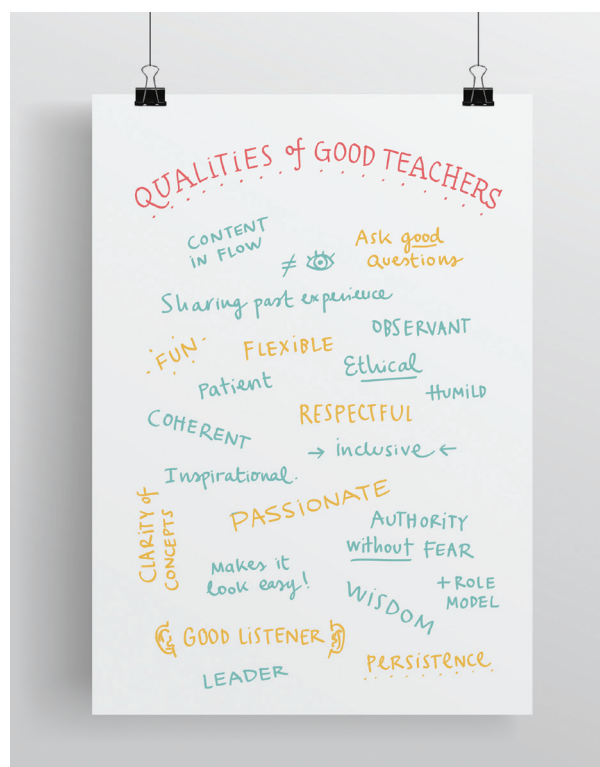 QUALITIES of GOOD TEACHERS
CONTENT
IN FLOW
≠
Ask good
Questions
Sharing past experience
OBSERVANT
FUN
FLEXIBLE
Ethical
Patient
HUMILD
COHERENT
RESPECTFUL
→ inclusive ←
Inspirational.
PASSIONATE
CLARITY of
CONCEPTS
AUTHORITY
without FEAR
Makes it
look easy!
WISDOM
+ ROLE
MODEL
GOOD LISTENER
LEADER
PERSISTENCE